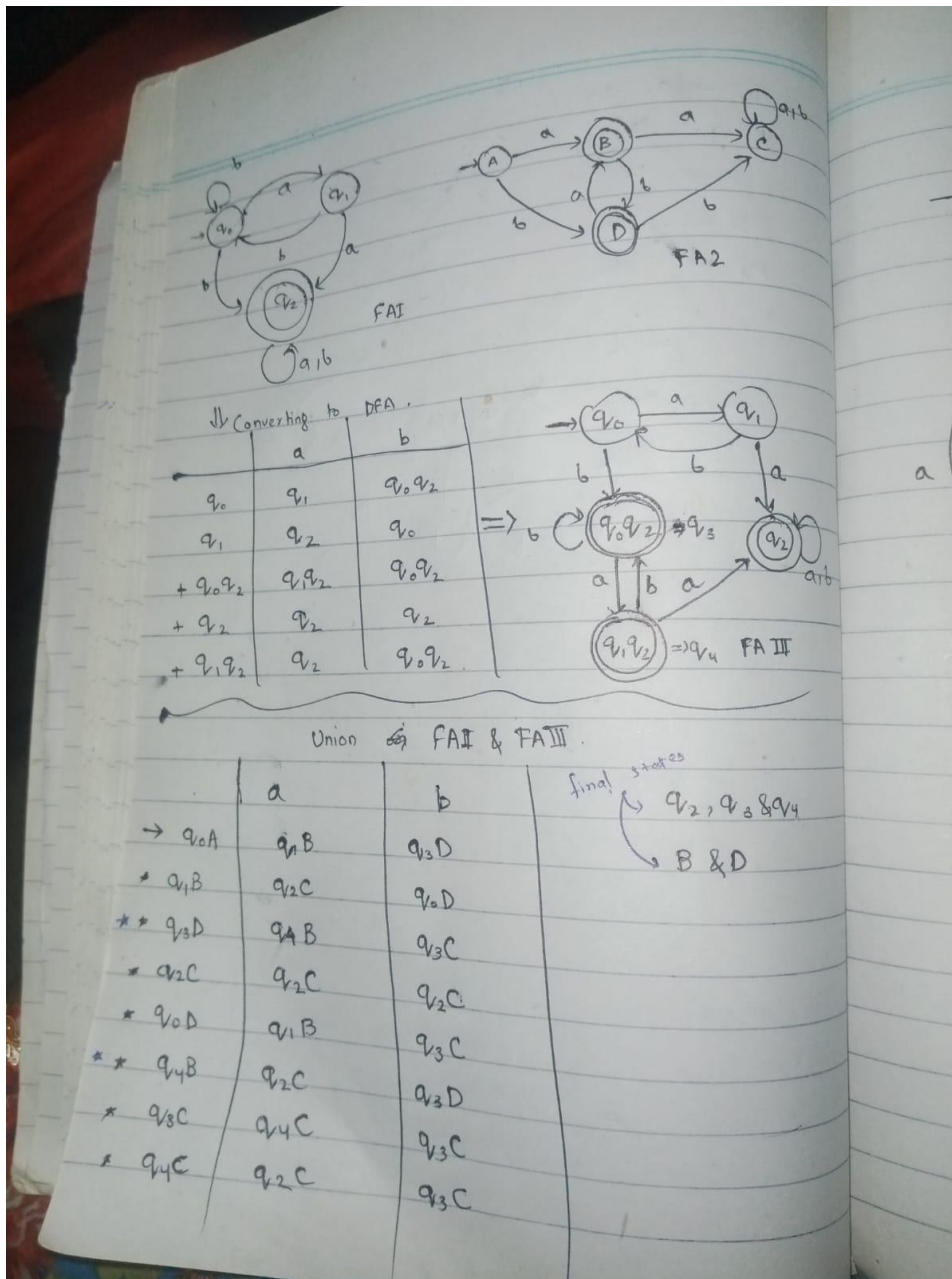 b
a
q₀
q₁
b
b
a
q₂
a,b
FAI
A
a
B
a
C
a,b
a
b
b
b
D
FA2
⇓ Converting to DFA.
a b
q₀ q₁ q₀q₂
q₁ q₂ q₀
+ q₀q₂ q₁q₂ q₀q₂
+ q₂ q₂ q₂
+ q₁q₂ q₂ q₀q₂
=>
q₀
a
q₁
b
b
a
b
q₀q₂ => q₃
q₂
a,b
a
b
a
q₁q₂ => q₄ FA III
Union FAII & FAIII.
a b
→ q₀A q₁B q₃D
* q₁B q₂C q₀D
** q₃D q₄B q₃C
* q₂C q₂C q₂C
* q₀D q₁B q₃C
** q₄B q₂C q₃D
* q₃C q₄C q₃C
* q₄C q₂C q₃C
final states
q₂, q₃ & q₄
B & D
a